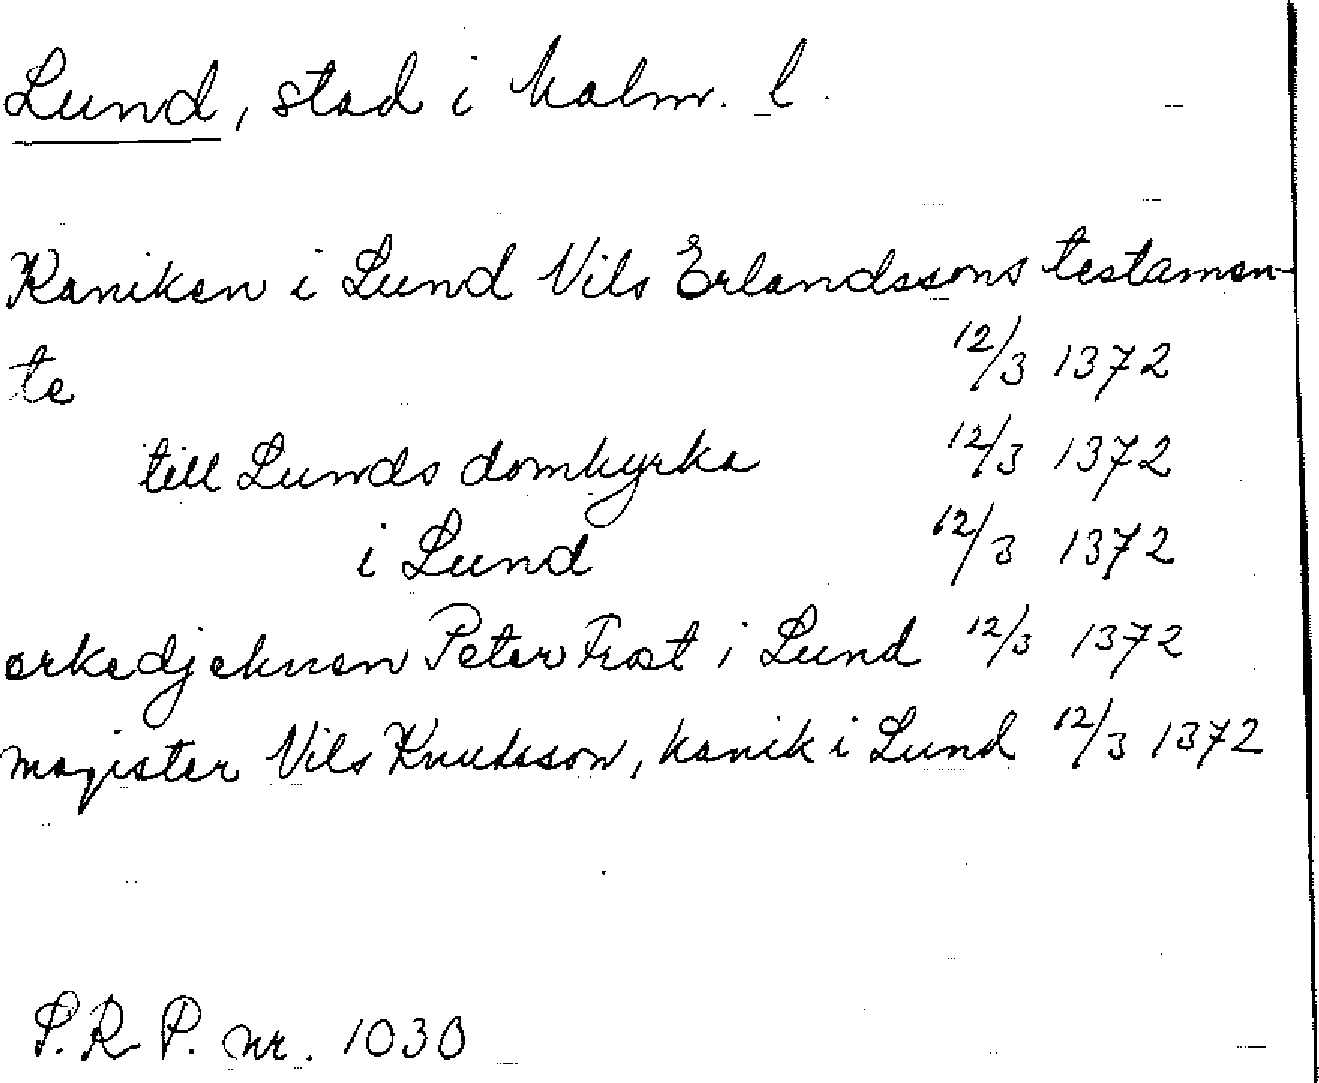 Lund, stad i Malm. l.
Kaniken i Lund Nils Erlandssons testamen-
te 12/3 1372
till Lunds domkyrka 12/3 1372
i Lund 12/3 1372
ärkedjeknen Peter Frost i Lund 12/3 1372
magister Nils Knutsson, kanik i Lund 12/3 1372
S.R.P. nr. 1030